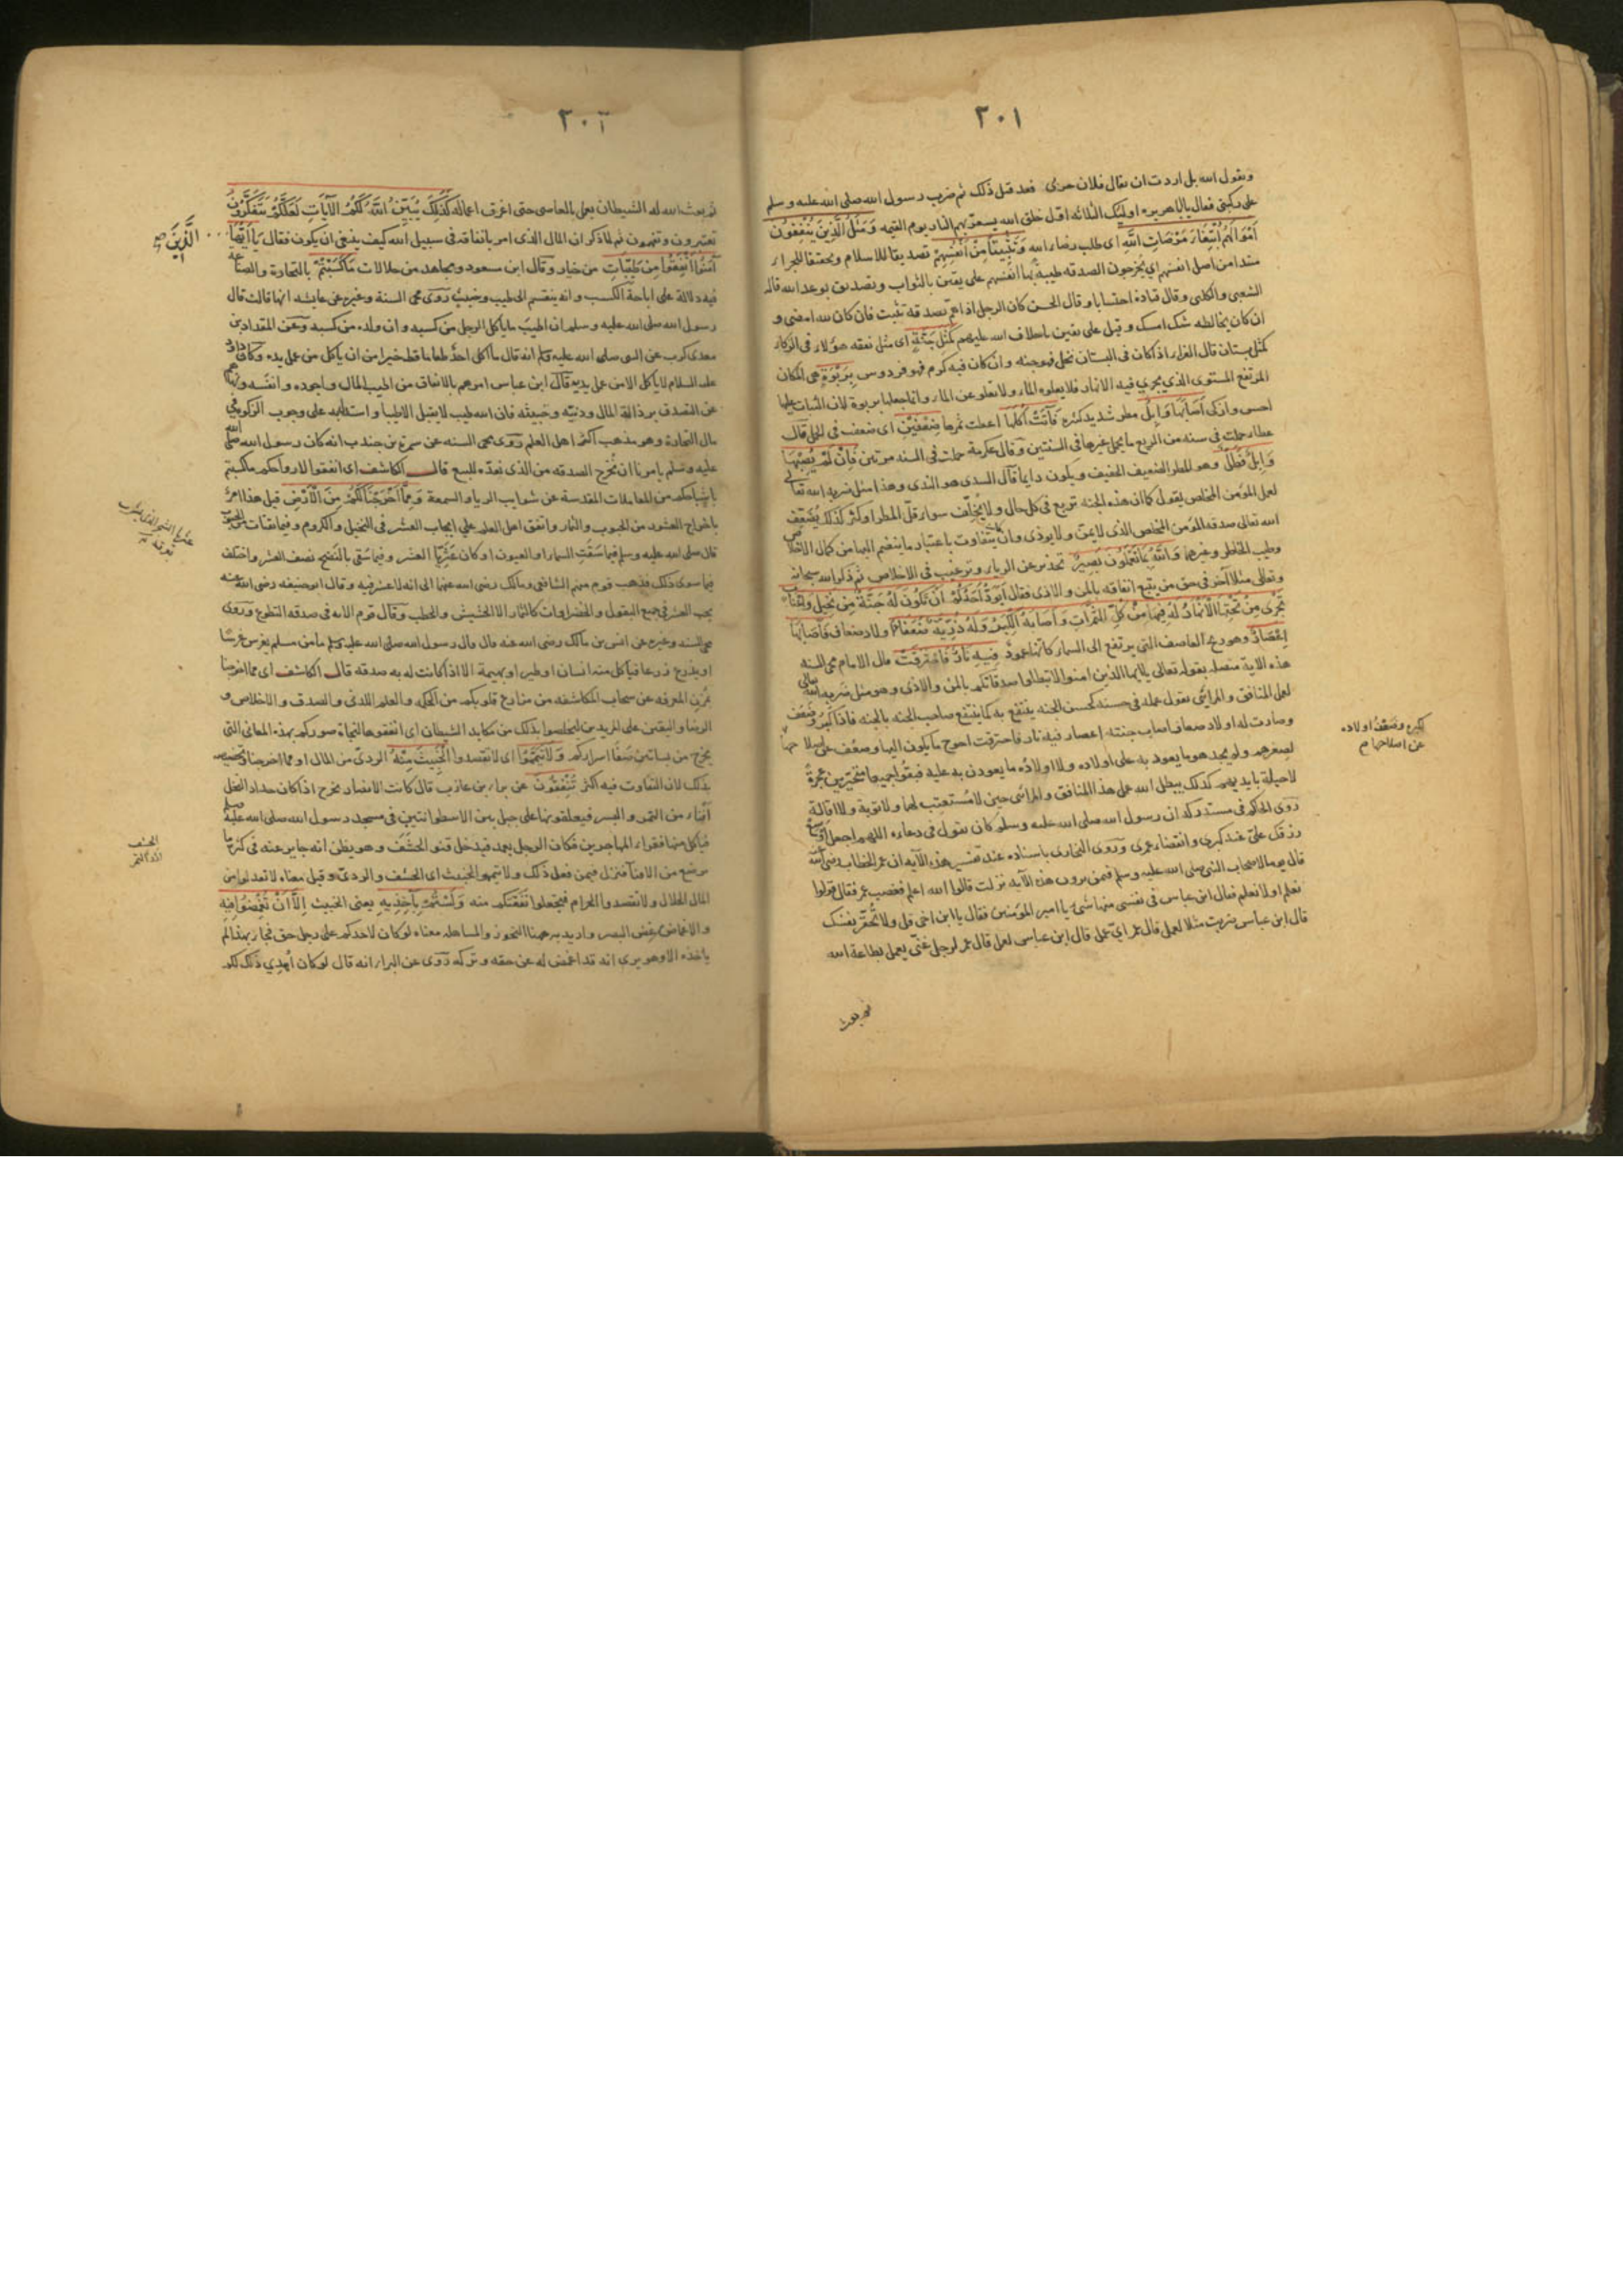 ٣٠١
ويقول الله بل اردت ان يقال فلان جرى فقد قيل ذلك ثم ضرب رسول الله صلى الله عليه وسلم
على ركبتى فقال يا ابا هريره اولئك الثلاثه اول خلق الله يسعر بهم النار يوم القيمه وَمَثَلُ الَّذِينَ يُنْفِقُونَ
اَمْوَالَهُمُ ابْتِغَاءَ مَرْضَاتِ اللَّهِ اى طلب رضاء الله وَتَثْبِيتًا مِنْ اَنْفُسِهِمْ تصديقا للاسلام وتحقيقا للجزاء
مبتدا من اصل انفسهم اى يُخرجون الصدقه طيبة بها انفسهم على يقين بالثواب وتصديق بوعد الله قاله
الشعبى والكلبى وقال قتادة احتسابا وقال الحسن كان الرجل اذا همّ بصدقة تثبت فان كان لله امضى و
ان كان يخالطه شك امسك و قيل على يقين باخلاف الله عليهم كَمَثَلِ جَنَّةٍ اى مثل نفقه هؤلاء فى الزكاء
كمثل بستان قال الفراء اذا كان فى البستان نخل فهو جنه وان كان فيه كرم فهو فردوس بِرَبْوَةٍ هى المكان
المرتفع المستوى الذي يجري فيه الانهار فلا يعلوه الماء ولا يعلو عن الماء وانما جعلها بربوة لان النبات عليها
احسن وازكى اَصَابَهَا وَابِلٌ مطر شديد كثير فَآتَتْ اُكُلَهَا اعطت ثمرها ضِعْفَيْنِ اى ضعف فى الحمل قال
عطاء حملت فى سنه من الريع ما يحمل غيرها فى السنتين وقال عكرمة حملت فى السنه مرتين فَاِنْ لَمْ يُصِبْهَا
وَابِلٌ فَطَلٌّ وهو المطر الضعيف الخفيف ويكون دايما قال السدى هو الندى وهذا مثل ضربه الله تعالى
لعمل المؤمن المخلص يقول كما ان هذه الجنه تريع فى كل حال ولا يُخلِف سواء قلّ المطر او كثر كذلك يُضعِف
الله تعالى صدقه المؤمن المخلص الذى لا يمنّ ولا يوذى وان كانت يتفاوت باعتبار ما ينضم اليها من كمال الاخلاص
وطيب الخاطر وغيرهما وَاللَّهُ بِمَا تَعْمَلُونَ بَصِيرٌ تحذير عن الرياء وترغيب فى الاخلاص ثم ذكر الله سبحانه
وتعالى مثلا آخر فى حق من يتبع انفاقه بالمن والاذى فقال اَيَوَدُّ اَحَدُكُمْ اَنْ تَكُونَ لَهُ جَنَّةٌ مِنْ نَخِيلٍ وَاَعْنَابٍ
تَجْرِى مِنْ تَحْتِهَا الْاَنْهَارُ لَهُ فِيهَا مِنْ كُلِّ الثَّمَرَاتِ وَاَصَابَهُ الْكِبَرُ وَلَهُ ذُرِّيَّةٌ ضُعَفَاءُ اولاد ضعاف فَاَصَابَهَا
اِعْصَارٌ وهو ريح العاصف التى يرتفع الى السماء كانها عمود فِيهِ نَارٌ فَاحْتَرَقَتْ قال الامام محى السنه
هذه الاية متصله بقوله تعالى يا ايها الذين امنوا لا تبطلوا صدقاتكم بالمن والاذى وهو مثل ضربه الله تعالى
لعمل المنافق والمرائى يقول عمله فى حسنه كحسن الجنه ينتفع به كما ينتفع صاحب الجنه بالجنه فاذا كبُر وضعُف
وصارت له اولاد ضعاف اصاب جنته اعصار فيه نار فاحترقت احوج ما يكون اليها وضعُف على اصلاحها
لصغرهم ولم يجد هو ما يعود به على اولاده ولا اولاده ما يعودن به عليه فبقوا جميعا متحيّرين عجزة
لا حيلة بايديهم كذلك يبطل الله عمل هذا المنافق والمرائى حين لا مُستعتب لهما ولا توبة ولا اقالة
روى الحاكم فى مستدركه ان رسول الله صلى الله عليه وسلم كان يقول فى دعاءه اللهم اجعل اوسع
رزقك علىّ عند كبرى وانقضاء عمرى وروى البخارى باسناده عند تفسير هذه الآيه ان عمر الخطاب رضى الله
قال يوما لاصحاب النبى صلى الله عليه وسلم فيمن يرون هذه الآيه نزلت قالوا الله اعلم فغضب عمر فقال قولوا
نعلم او لا نعلم فقال ابن عباس فى نفسى منها شئ يا امير المؤمنين فقال يا ابن اخى قل ولا تُحقّر نفسك
قال ابن عباس ضربت مثلا لعمل قال عمر اىّ عمل قال ابن عباس لعمل قال عمر لرجل غنىّ يعمل بطاعة الله
ثم بعث
لكبره وضعف اولاده
عن اصلاحها
٣٠٢
ثم بعث الله له الشيطان يعمل بالمعاصى حتى اغرق اعماله كَذَلِكَ يُبَيِّنُ اللَّهُ لَكُمُ الْآيَاتِ لَعَلَّكُمْ تَتَفَكَّرُونَ
تعتبرون وتفهمون ثم لما ذكر ان المال الذى امر بانفاقه فى سبيل الله كيف ينبغى ان يكون فقال يَا اَيُّهَا
الَّذِينَ صح
آمَنُوا اَنْفِقُوا مِنْ طَيِّبَاتِ من خيار وقال ابن مسعود ومجاهد من حلالات مَا كَسَبْتُمْ بالتجارة والصناعة
فيه دلالة على اباحة الكسب وانه ينقسم الى طيب وخبيث روى محى السنة وغيره عن عايشه انها قالت قال
رسول الله صلى الله عليه وسلم ان اطيب ما ياكل الرجل من كسبه وان ولده من كسبه وعن المقداد بن
معدى كرب عن النبى صلى الله عليه وسلم انه قال ما اكل احدٌ طعاما قط خيرا من ان ياكل من عمل يده وكان داود
عليه السلام لا ياكل الا من عمل يديه قال ابن عباس امرهم بالانفاق من اطيب المال واجوده وانفسه ونهاهم
عن التصدق برذالة المال ودنيّه وخبيثه فان الله طيب لا يقبل الا طيبا واستدل به على وجوب الزكوة فى
مال التجارة وهو مذهب اكثر اهل العلم روى محى السنه عن سمرة بن جندب انه كان رسول الله صلى الله
عليه وسلم يامرنا ان نُخرج الصدقه من الذى نعدّه للبيع قال الكاشف اى انفقوا لارواحكم ما كسبتم
باشباحكم من المعاملات المقدسة عن شوايب الرياء والسمعة وَمِمَّا اَخْرَجْنَا لَكُمْ مِنَ الْاَرْضِ قيل هذا امر
باخراج العشور من الحبوب والثمار واتفق اهل العلم على ايجاب العشر فى النخيل والكروم وفيما يقتات من الحبوب
قال صلى الله عليه وسلم فيما سَقَت السماء او العيون او كان عَثَرِيّا العشر وفيما سُقى بالنَّضح نصف العشر واختلف
فيما سوى ذلك فذهب قوم منهم الشافعى ومالك رضى الله عنهما الى انه لا عشر فيه وقال ابو حنيفه رضى الله عنه
يجب العشر فى جميع البقول والخضراوات كالثمار الا الحشيش والحطب وقال قوم الايه فى صدقه التطوع وروى
محى السنه وغيره عن انس بن مالك رضى الله عنه قال قال رسول الله صلى الله عليه وسلم ما من مسلم يغرس غرسًا
او يزرع زرعا فياكل منه انسان او طير او بهيمة الا اذ كانت له به صدقه قال الكاشف اى مما اخرجنا
بمُزن المعرفه عن سحاب المكاشفه من مزارع قلوبكم من الحكمه والعلم اللدنى والصدق والاخلاص و
الرضا واليقين على المريدين ليخلصوا بذلك من مكايد الشيطان اى انفقوها لنجاة صوركم بهذه المعانى التى
يخرج من بساتين صفاء اسراركم وَلَا تَيَمَّمُوا اى لا تقصدوا الْخَبِيثَ مِنْهُ الردىّ من المال او مما اخرجنا وتخصيصه
بذلك لان التفاوت فيه اكثر تُنْفِقُونَ عن براء بن عازب قال كانت الانصار تخرج اذا كان جداد النخل
اقناء من التمر والبسر فيعلقونها على حبل بين الاسطوانتين فى مسجد رسول الله صلى الله عليه وسلم
فياكل منها فقراء المهاجرين فكان الرجل يعمد فيدخل قنو الحَشَف وهو يظن انه جايز عنه فى كثرة ما
يوضع من الاقناء فنزل فيمن فعل ذلك ولا تيمموا الخبيث اى الحشف والردىّ وقيل معناه لا تعدلوا من
المال الحلال ولا تقصدوا الحرام فتجعلوا نفقتكم منه وَلَسْتُمْ بِآخِذِيهِ يعنى الخبيث اِلَّا اَنْ تُغْمِضُوا فِيهِ
والاغماض غض البصر واريد به ههنا التجوز والمساهله معناه لو كان لاحدكم على رجل حق فجاء بهذا لم
ياخذه الا وهو يرى انه قد اغمض له عن حقه وتركه روى عن البراء انه قال لو كان اُهدِي ذلك لكم
عثريا الشجر الذى يشرب
بعرقه
الحشف
اردا التمر